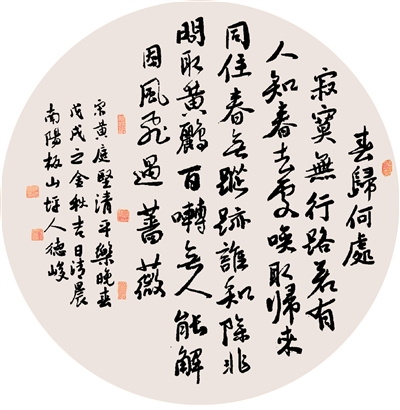 春歸何處
寂寞無行路若有
人知春去處喚取歸來
同住春无蹤跡誰知除非
問取黃鸝百囀无人能解
因風飛過薔薇
宋黃庭堅清平樂晚春
戊戌之金秋吉日清晨
南陽板山坪人德峻